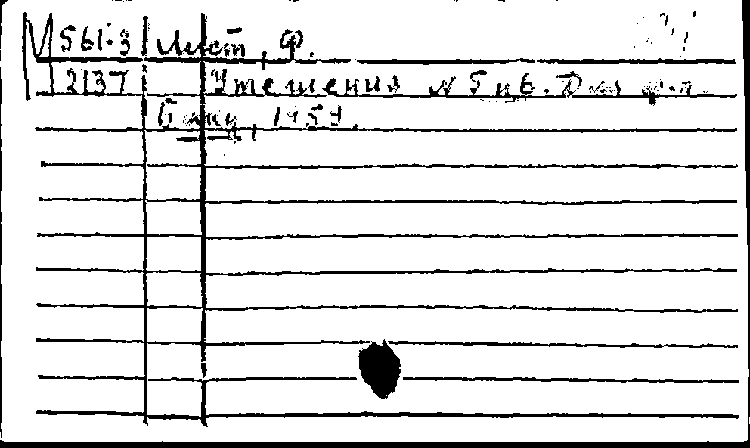 М561-3 Лист, Ф.
2137 Утешения №5 и 6. Для ф-п.
Баку, 1957.